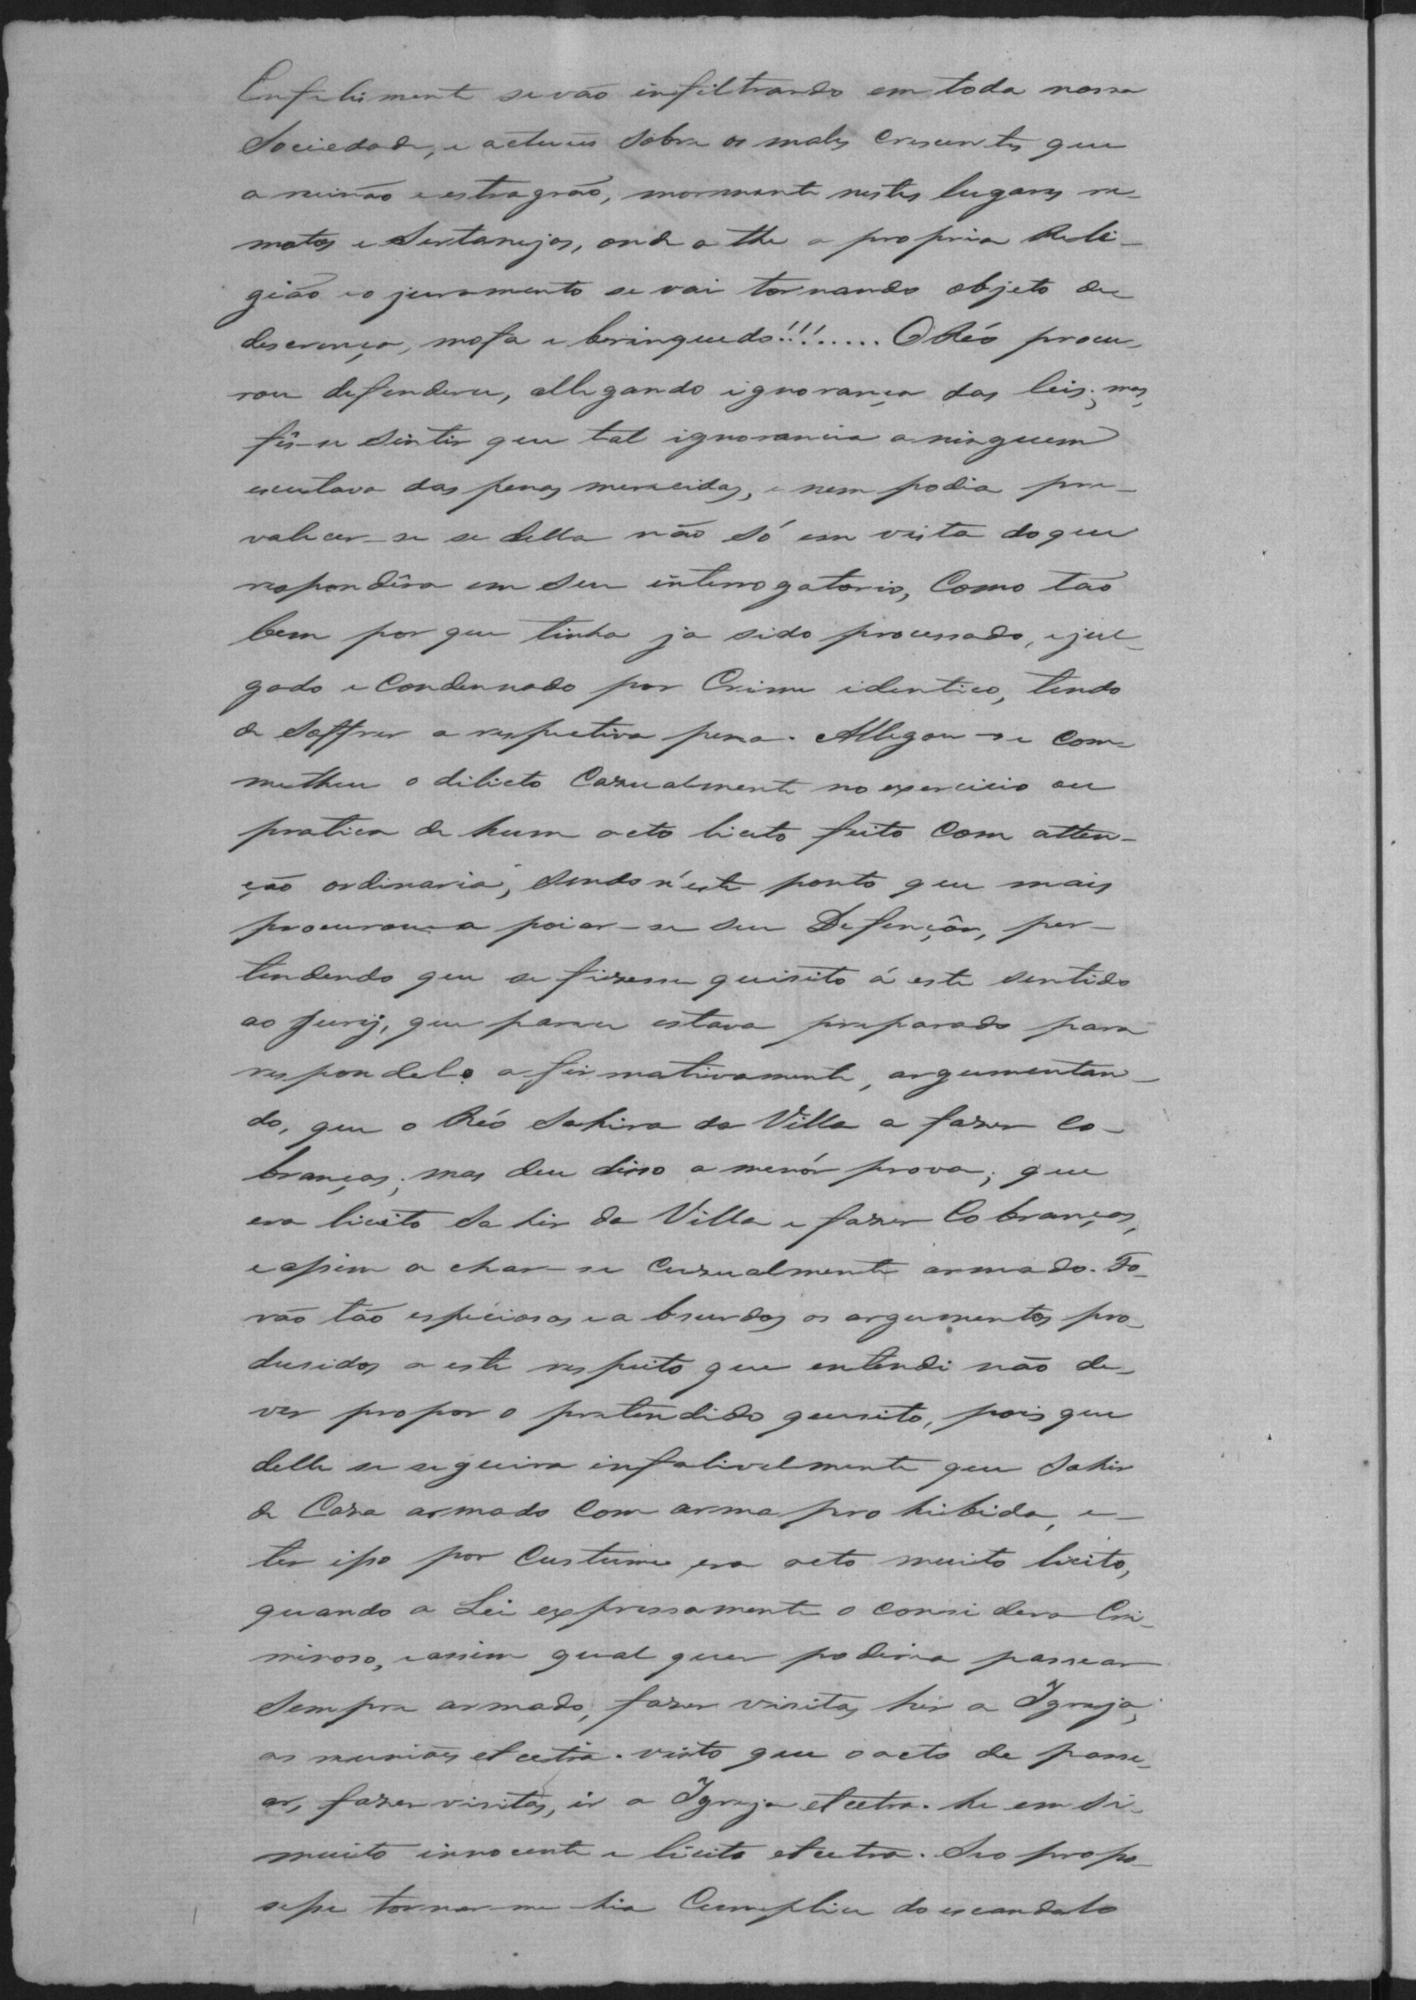 Enfelismente se vão infiltrando em toda nossa
Sociedade, e actuão sobre os males crescentes que
a minão e estragão, mormente nestes lugares re-
motos e Sertanejos, onde athe a propria Reli-
gião e o juramento se vai tornando objeto de
descrença, mofa e beringuedo!!!..... O Réo procu-
rou defenderce, allegando ignorança das leis; mas,
fês-se sintir que tal ignorancia a ninguem
escutava das penas merecidas, e nem podia pre-
valecer-se se della não só em vista do que
respondêra em seu interrogatorio, Como tão
bem por que tinha ja sido processado, e jul-
gado e Condennado por Crime identico, tendo
de soffrer a respectiva pena. Allegou-se com-
metheu o dilicto Cazualmente no exercicio ou
pratica de hum acto licito feito Com atten-
ção ordinaria, sendo n'este ponto que mais
procurou-a poiar-se seu Defençôr, per-
tendendo que se fizesse quisito á este sentido
ao Jurij, que parece estava preparado para
respondelo afirmativamente, argumentan-
do, que o Réo Sahira da Villa a fazer Co-
branças; mas deu disso a menór prova; que
era licito Sahir da Villa e fazer Cobranças,
e assim a char-se Cazualmente armado. Fo-
rão tão espéciosos e absurdos os argumentos pro-
dusidos a este respeito que entendi não de-
ver propor o pretendido quisito, pois que
delle se segueria infalivelmente que Sahir
de Caza armado Com arma prohibida, e-
ter isso por Custume era acto muito licito,
quando a Lei expressamente o considera Cri-
minoso, e assim qual quer poderia passear
Sempre armado, fazer visitas, hir a Igreja,
as reuniões etcetra. visto que o acto de passe-
ar, fazer visitas, ir a Igreja etcetra. he em si-
muito innocente e licito etcetra. Se o propo-
sesse tornar me hia Cumplice do escandalo